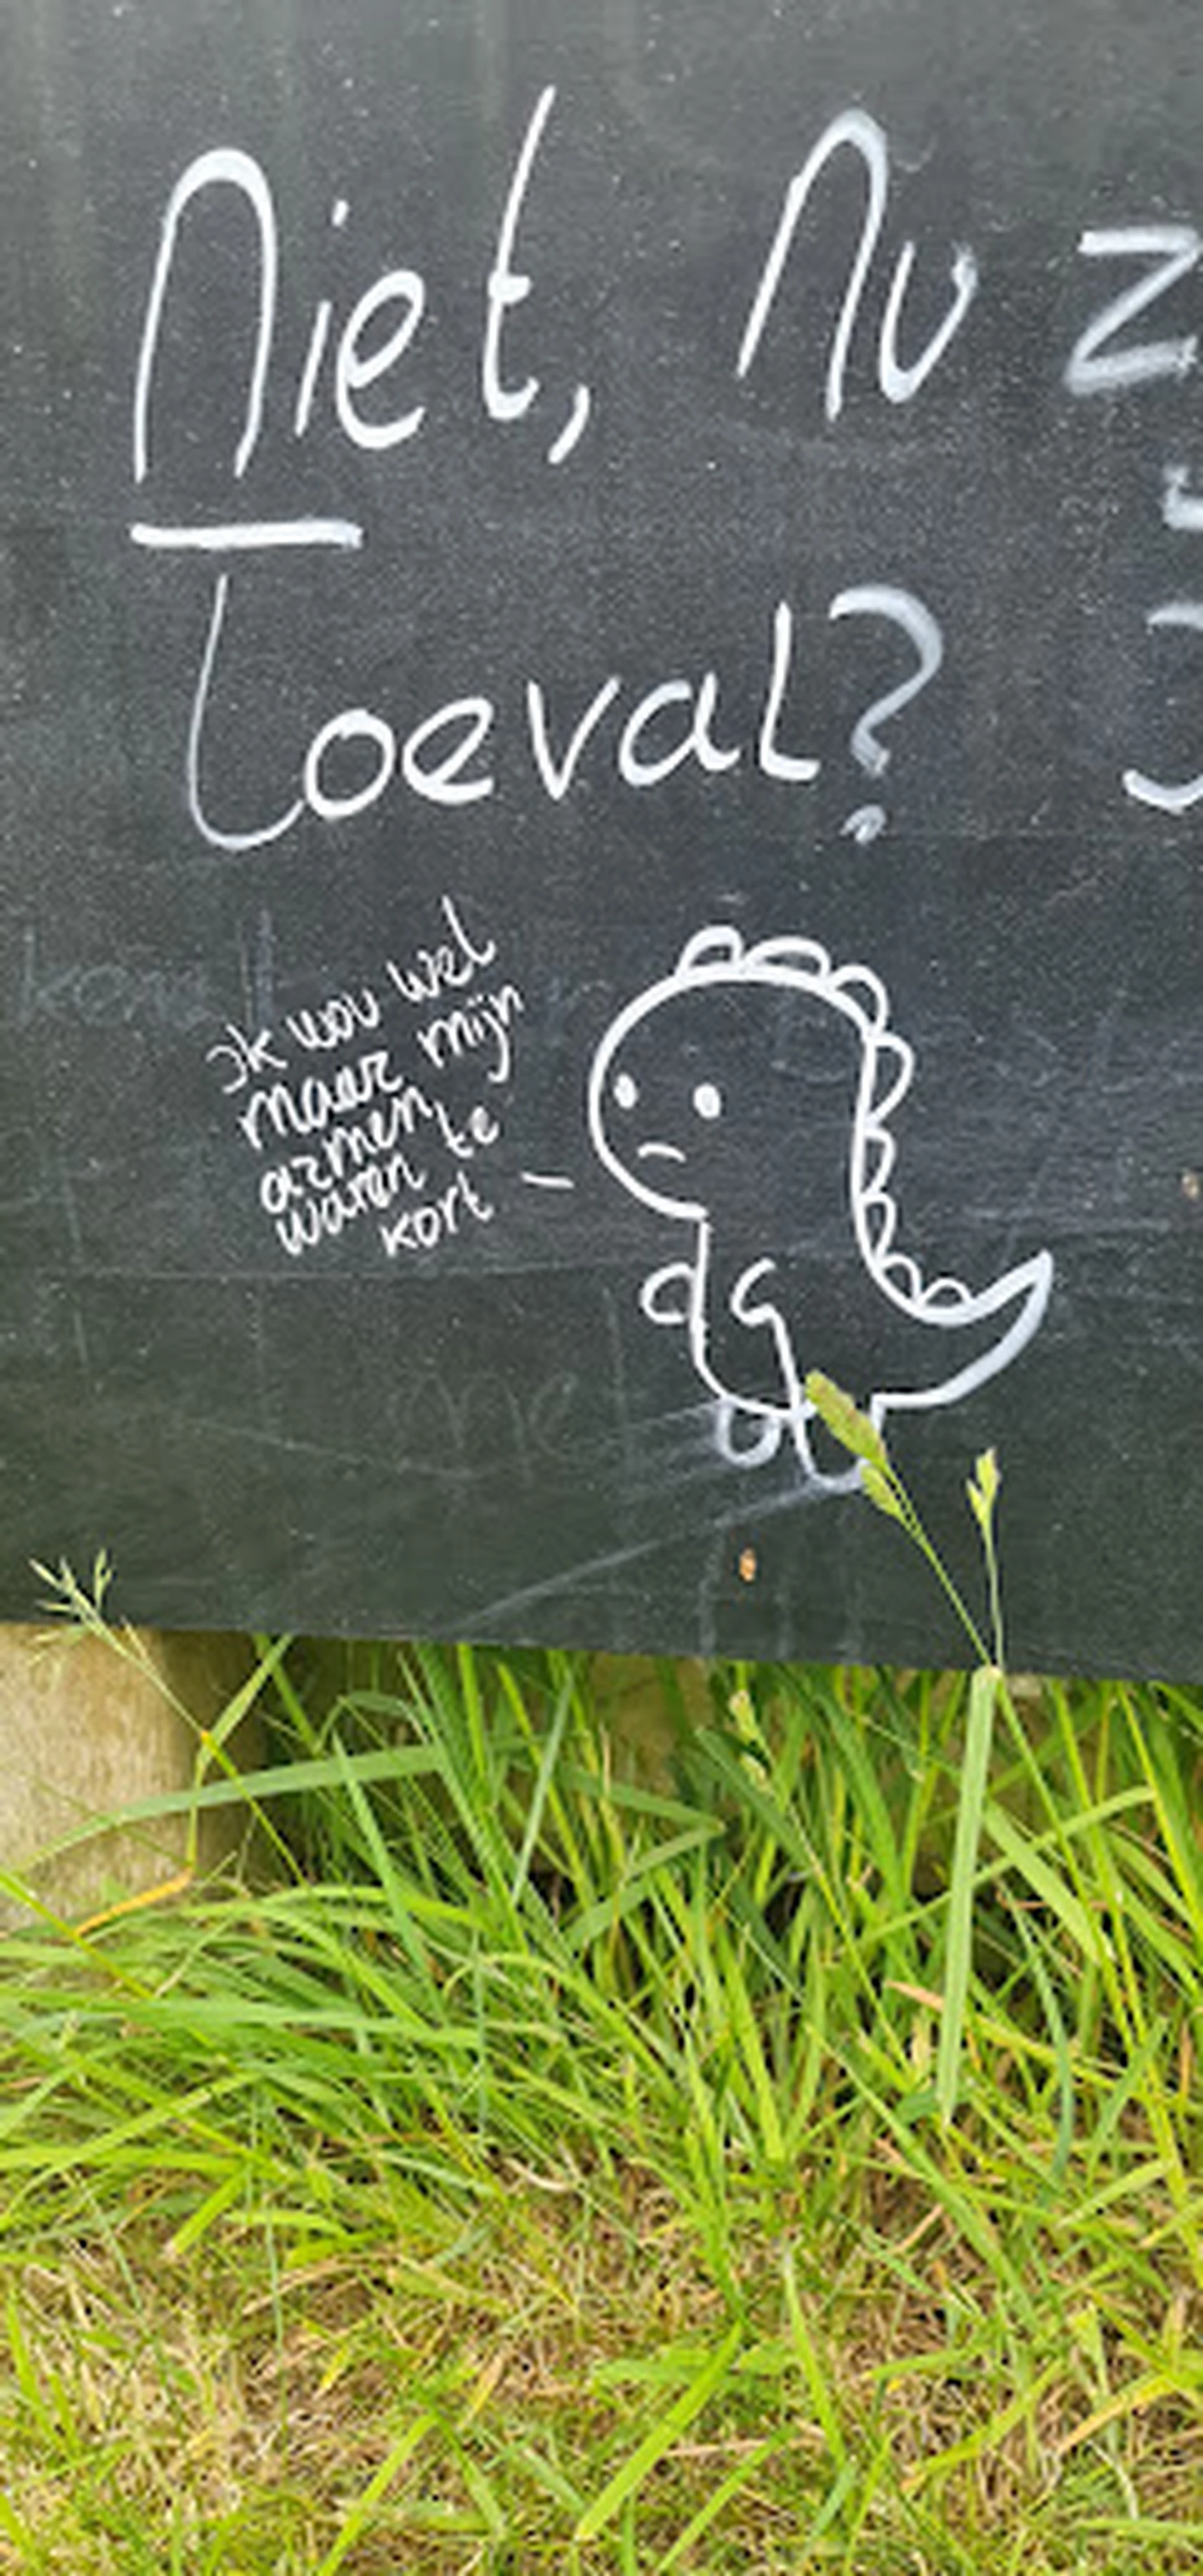 Niet, Nu z
Toeval?
Ik wou wel
maar mijn
armen
waren te
kort